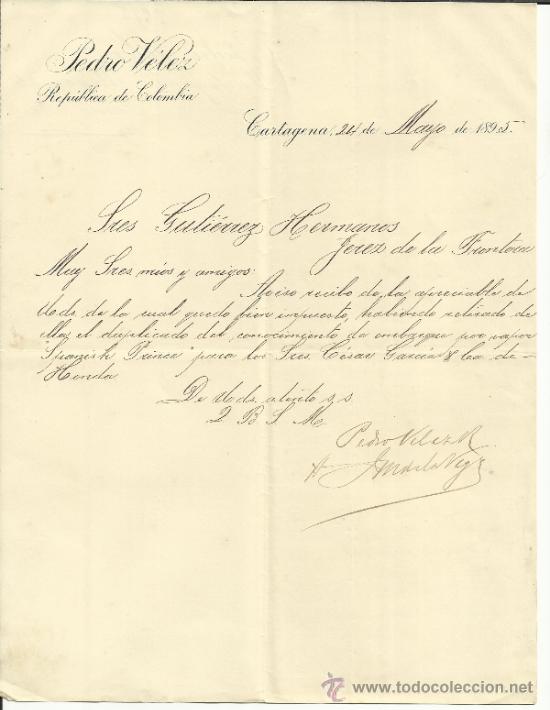 Pedro Vélez
República de Colombia
Cartagena, 24 de Mayo de 1895.
Sres Gutiérrez Hermanos
Jerez de la Frontera
Muy Sres mios y amigos:
Aviso recibo de la apreciable de
Uds. de la cual quedo bien impuesto, habiendo retirado de
ella, el duplicado del conocimiento de embarque por vapor
"Spanish Prince" para los Sres. César García & Ca de
Honda
De Uds. atento s.s.
Q B S M
Pedro Vélez R
todocoleccion
www.todocoleccion.net